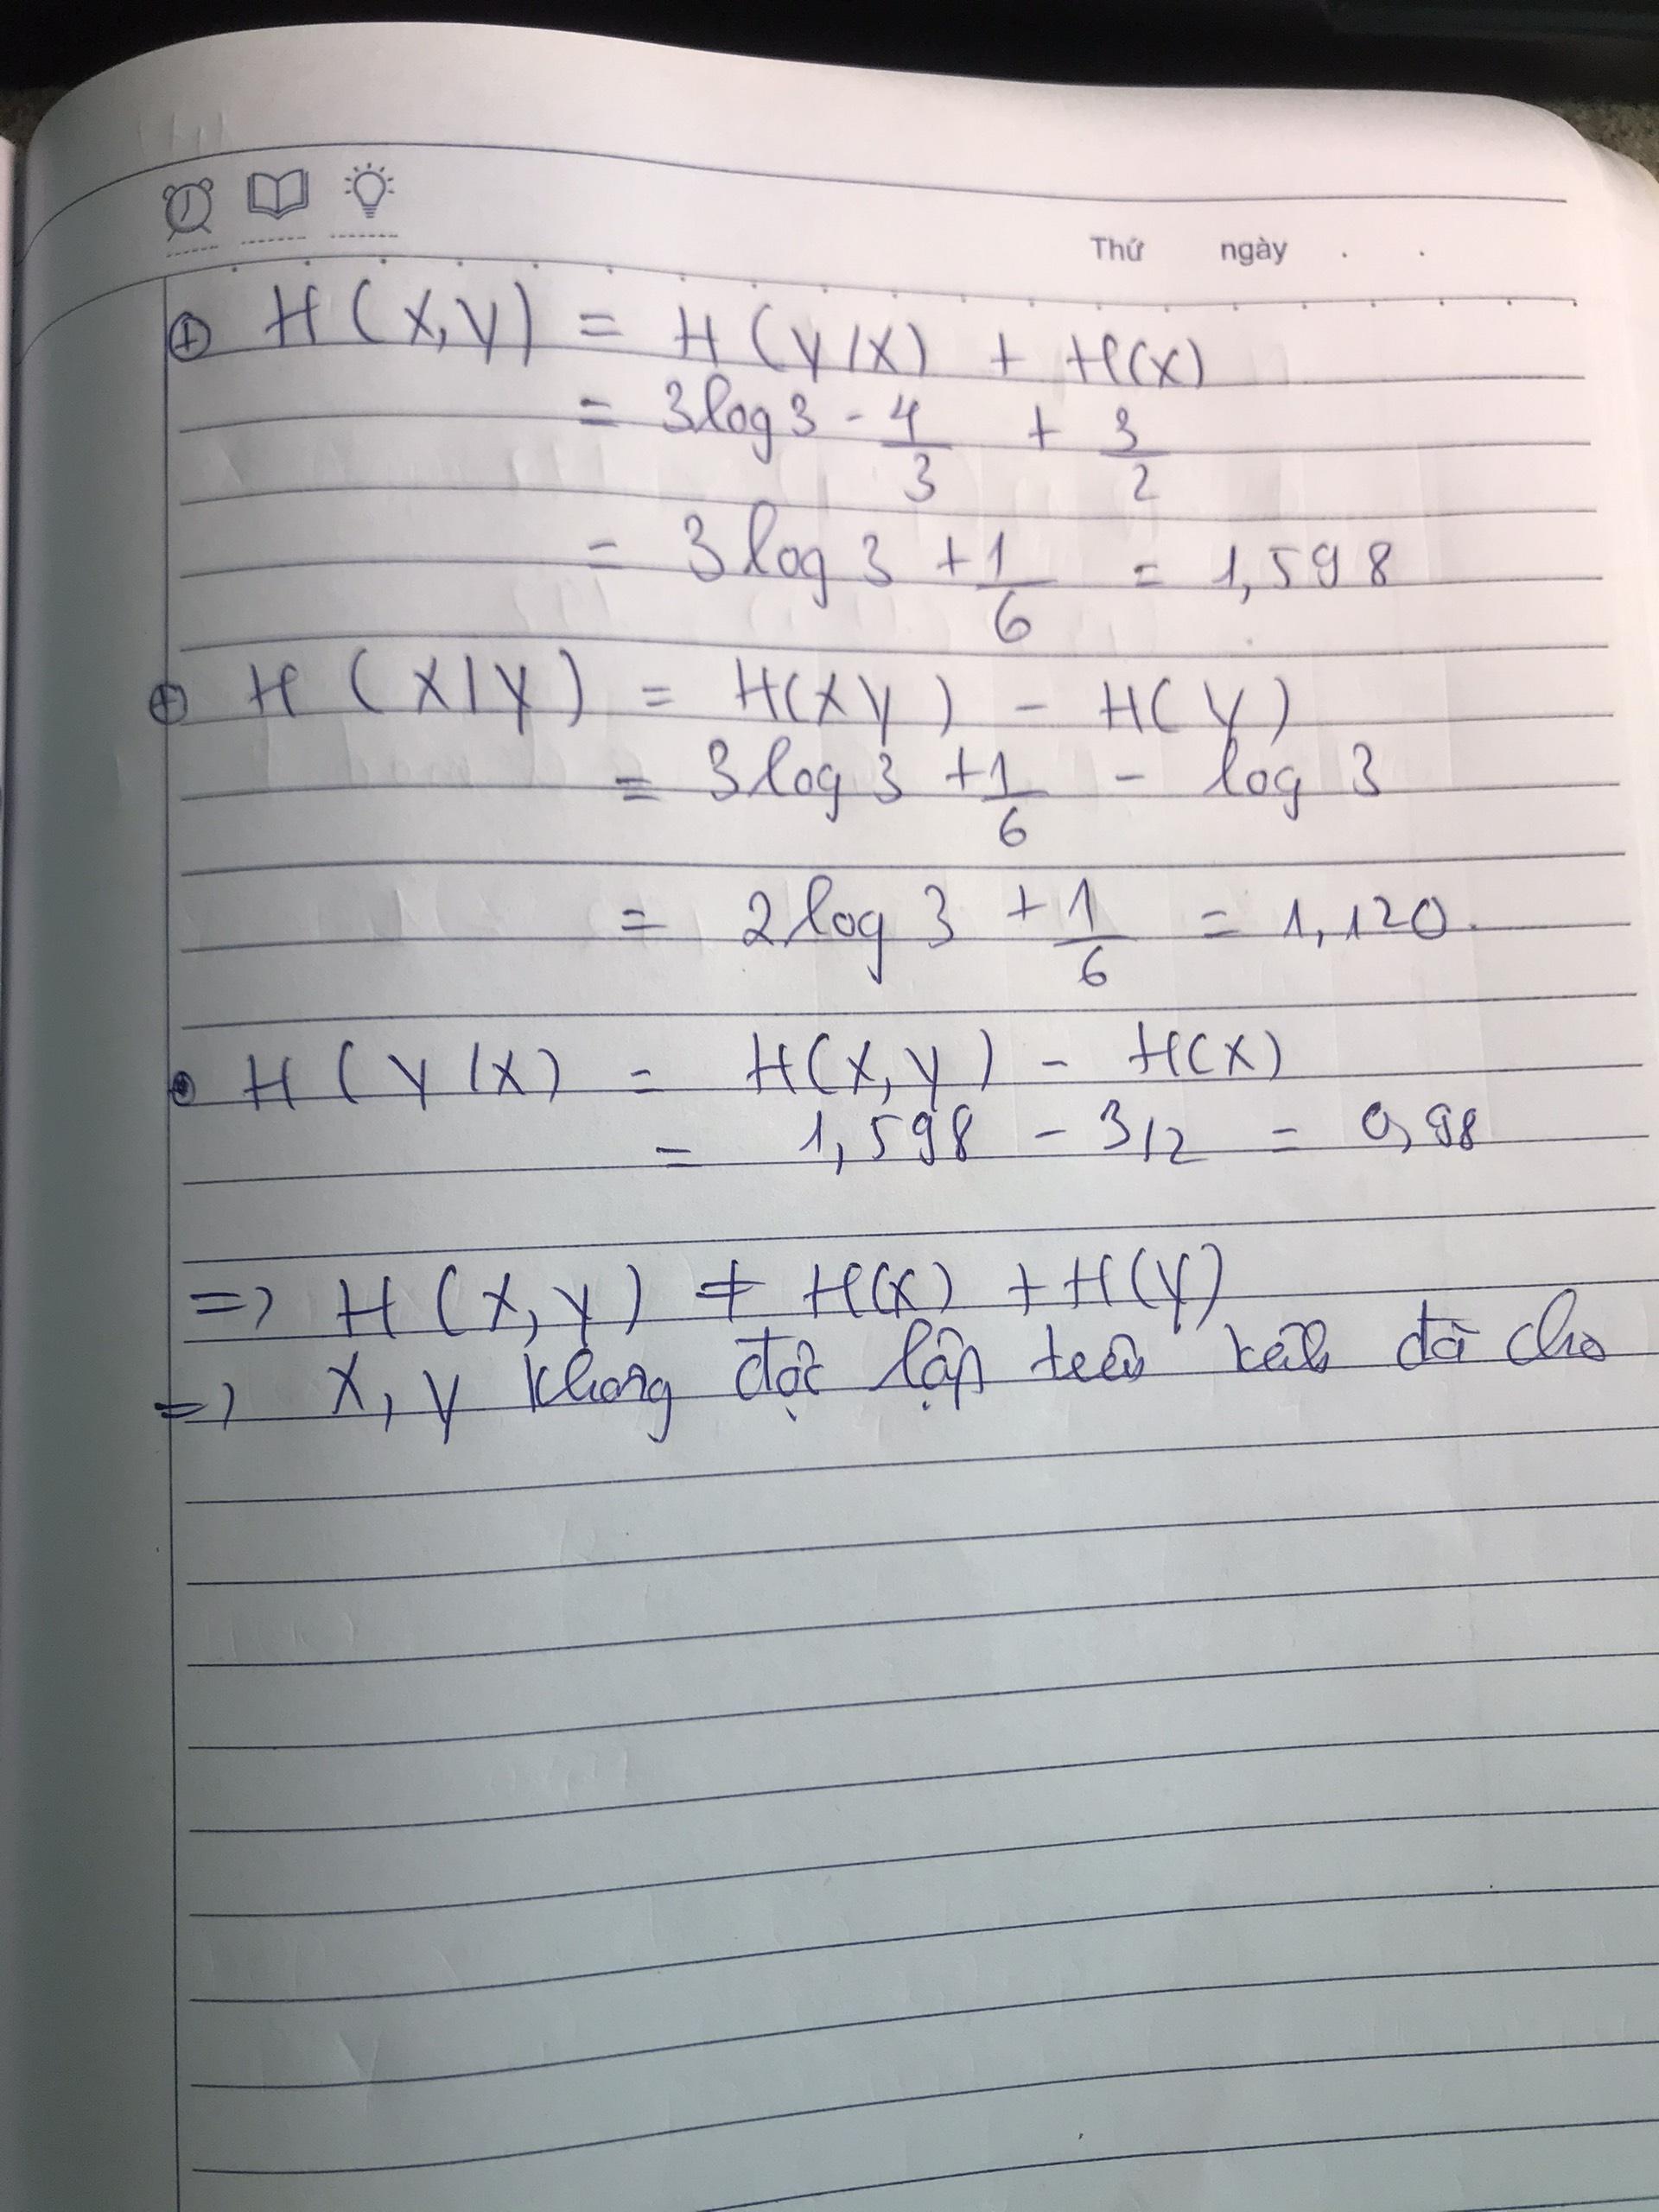 Thứ ngày . .
⊕ H(X,Y) = H(Y/X) + H(X)
= 3log3 - 4/3 + 3/2
= 3log3 + 1/6 = 1,598
⊕ H(X/Y) = H(XY) - H(Y)
= 3log3 + 1/6 - log3
= 2log3 + 1/6 = 1,120.
• H(Y/X) = H(X,Y) - H(X)
= 1,598 - 3/2 = 0,98
=> H(X,Y) ≠ H(X) + H(Y)
=> X, Y không độc lập trên kênh đã cho